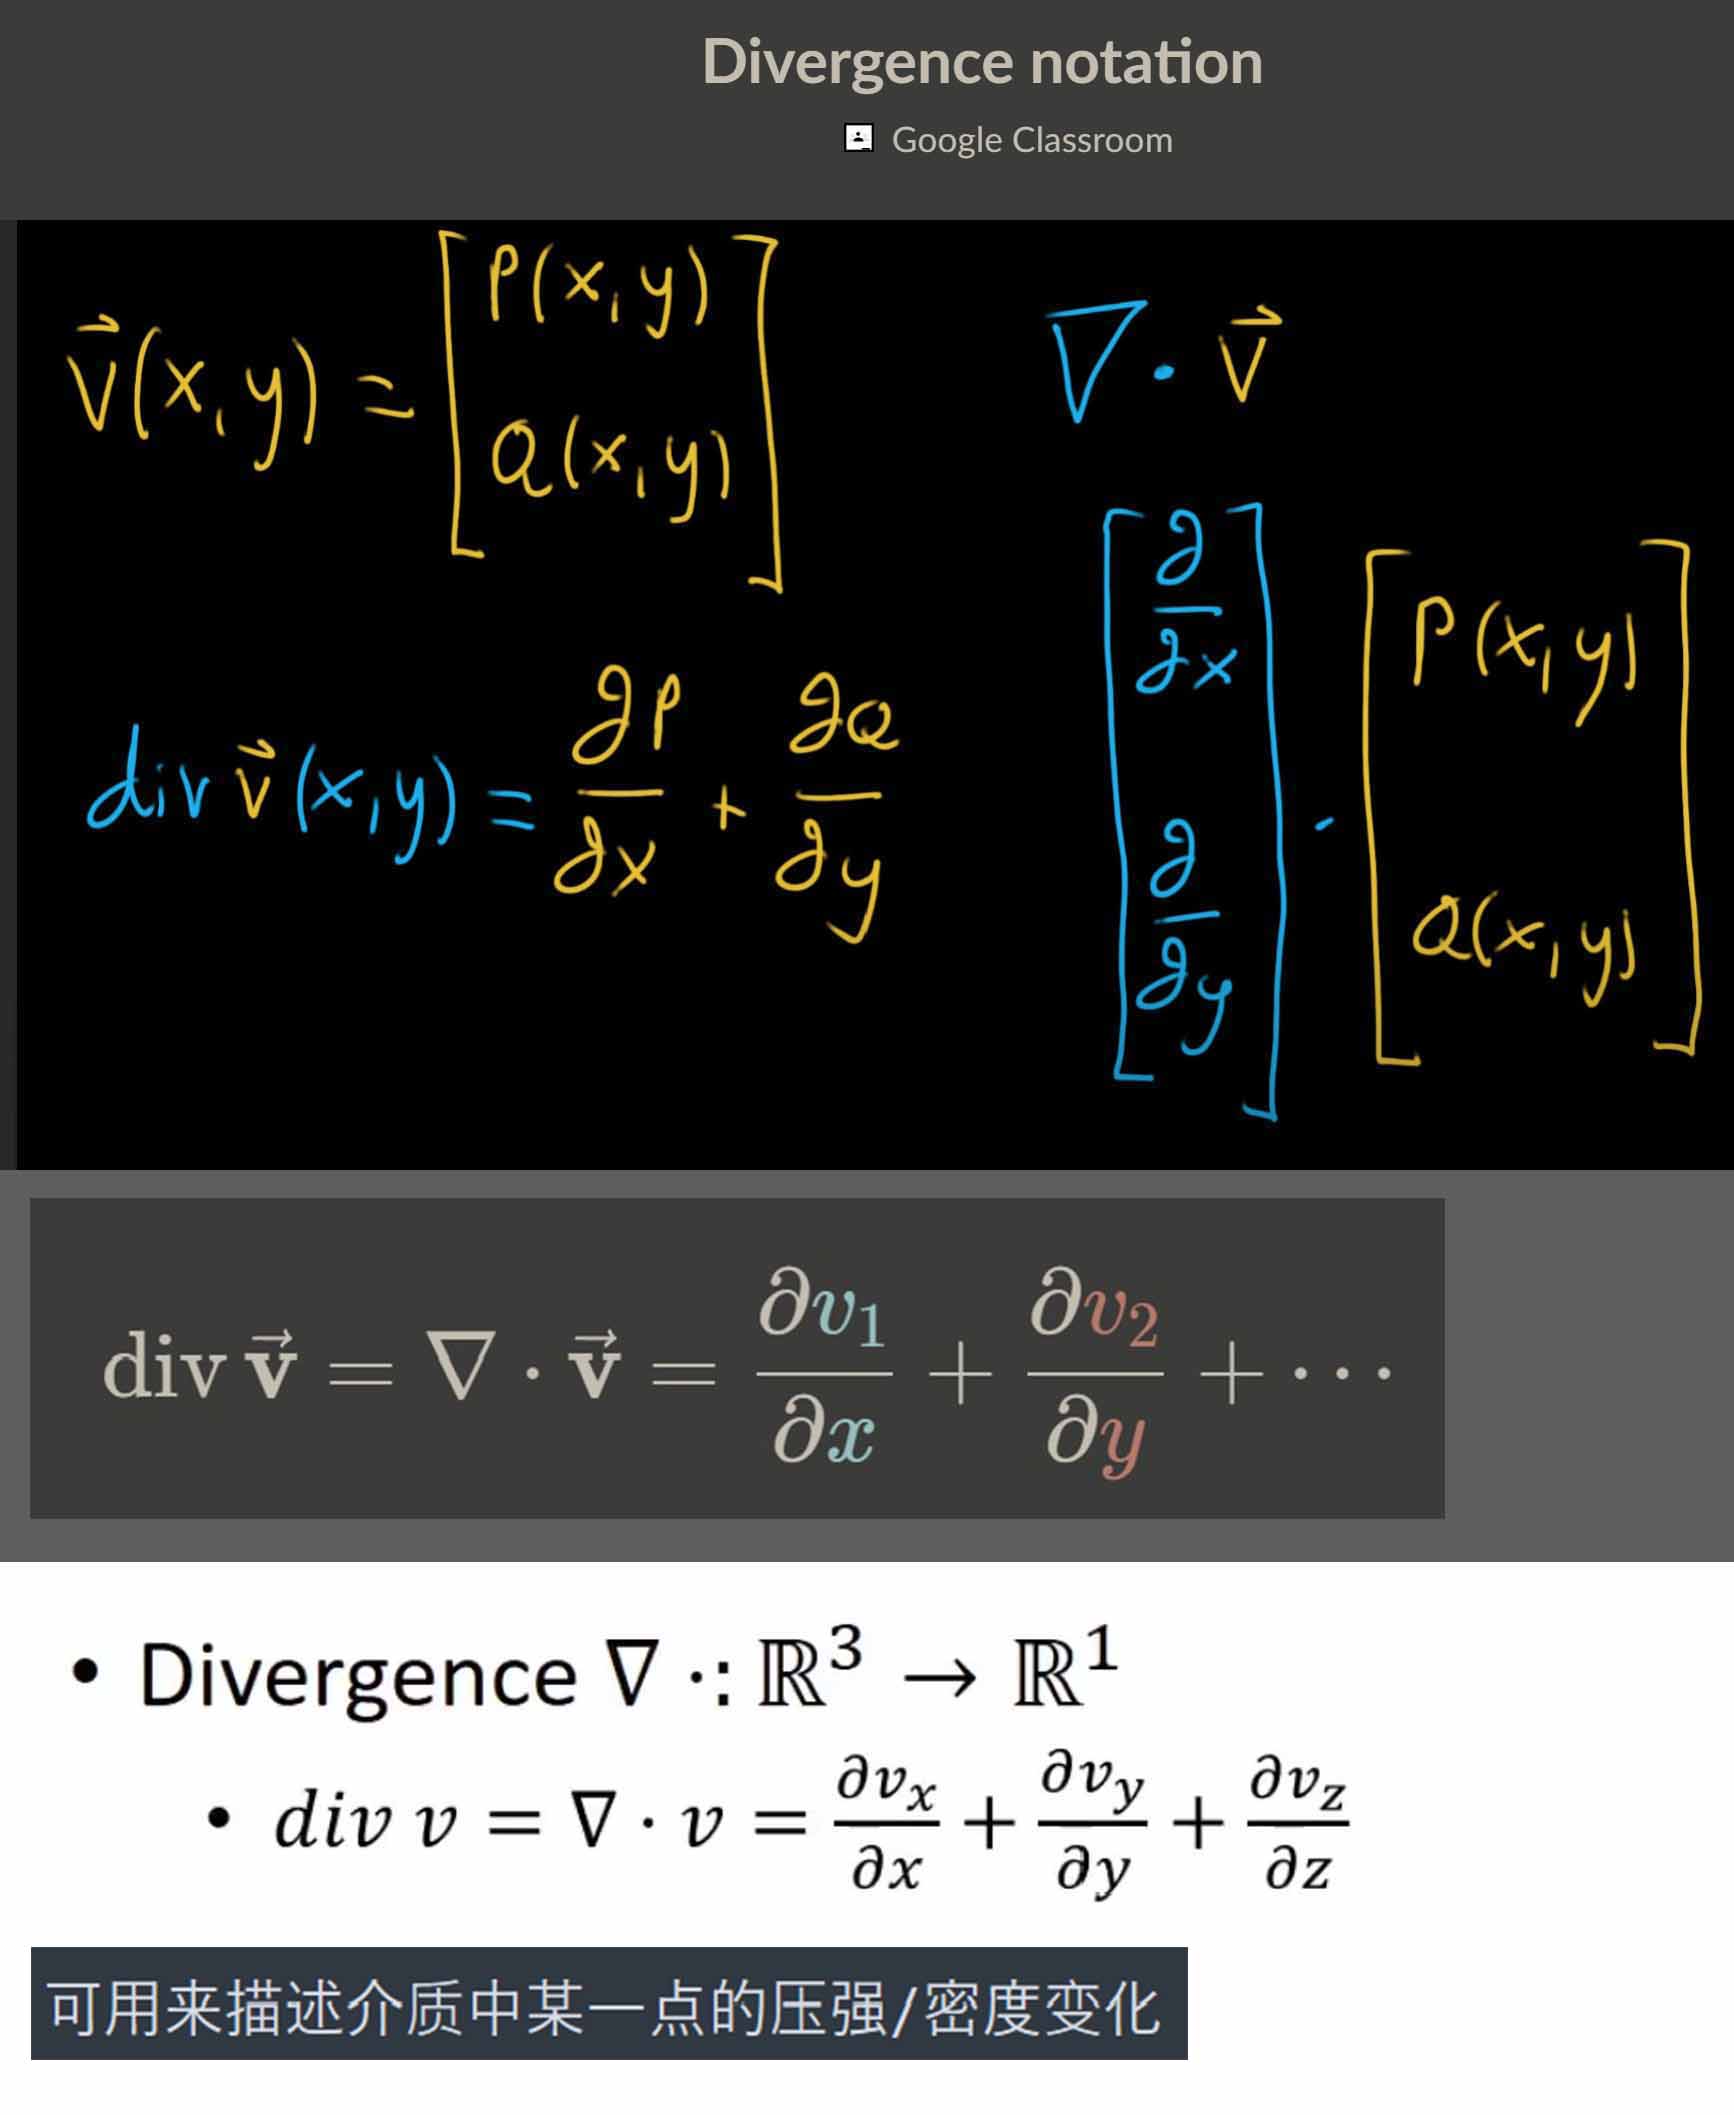 Divergence notation
Google Classroom
v⃗(x,y) = [P(x,y) Q(x,y)]
∇ · v⃗
[∂/∂x ∂/∂y] · [P(x,y) Q(x,y)]
div v⃗(x,y) = ∂P/∂x + ∂Q/∂y
div v⃗ = ∇ · v⃗ = ∂v₁/∂x + ∂v₂/∂y + ···
• Divergence ∇ ·: ℝ³ → ℝ¹
• div v = ∇ · v = ∂vₓ/∂x + ∂v_y/∂y + ∂v_z/∂z
可用来描述介质中某一点的压强/密度变化